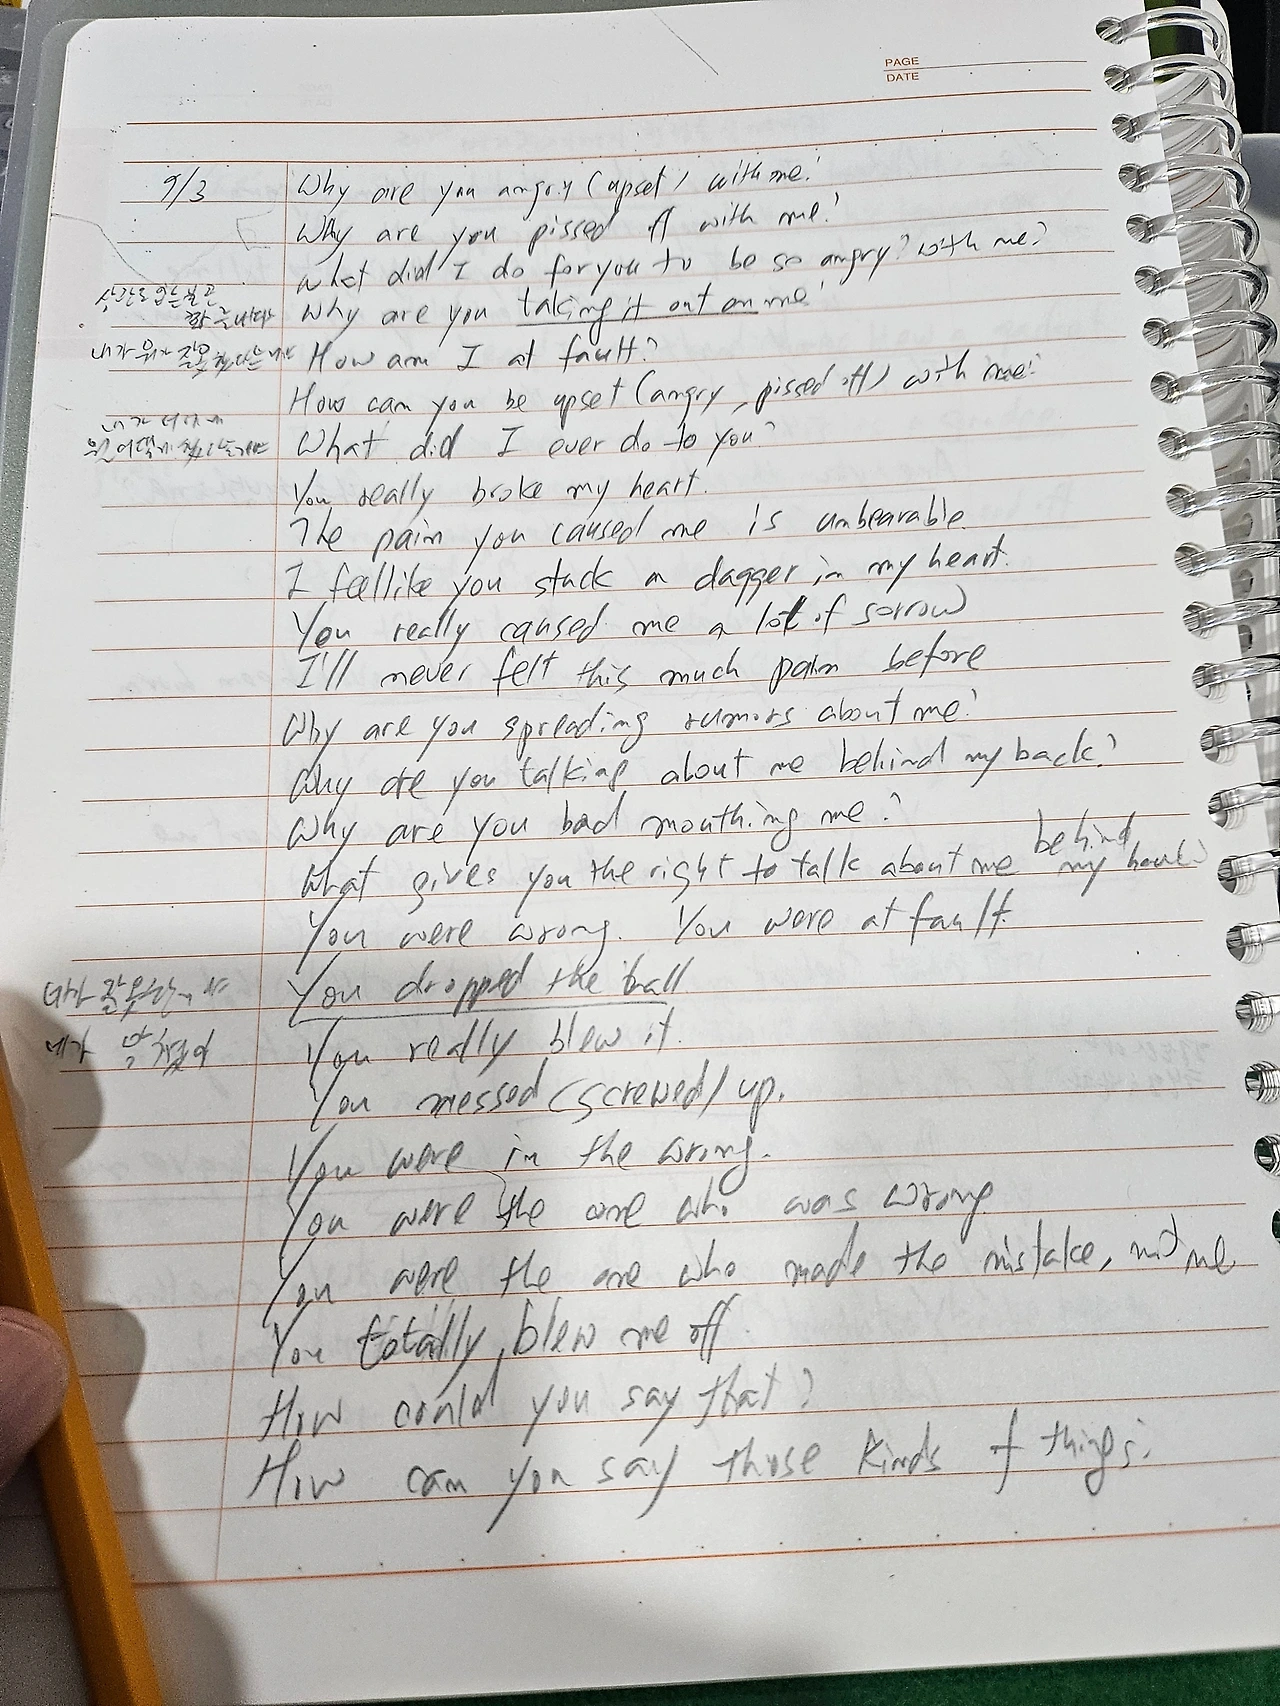 PAGE
DATE
9/3
Why are you angry (upset) with me?
Why are you pissed off with me?
What did I do for you to be so angry? with me?
상관도 없는
Why are you taking it out on me?
내가 뭐가 잘못했다는
How am I at fault?
How can you be upset (angry, pissed off) with me?
내가 너에게
뭘 어떻게 했다는거야
What did I ever do to you?
You really broke my heart.
The pain you caused me is unbearable.
I feellike you stuck a dagger in my heart.
You really caused me a lot of sorrow
I'll never felt this much pain before
Why are you spreading rumors about me?
Why are you talking about me behind my back?
Why are you bad mouthing me?
What gives you the right to talk about me behind my back?
You were wrong. You were at fault.
네가 잘못한거야
You dropped the ball.
네가 망쳤어
You really blew it.
You messed (screwed) up.
You were in the wrong.
You were the one who was wrong.
You were the one who made the mistake, not me
You totally blew me off.
How could you say that?
How can you say those kinds of things?